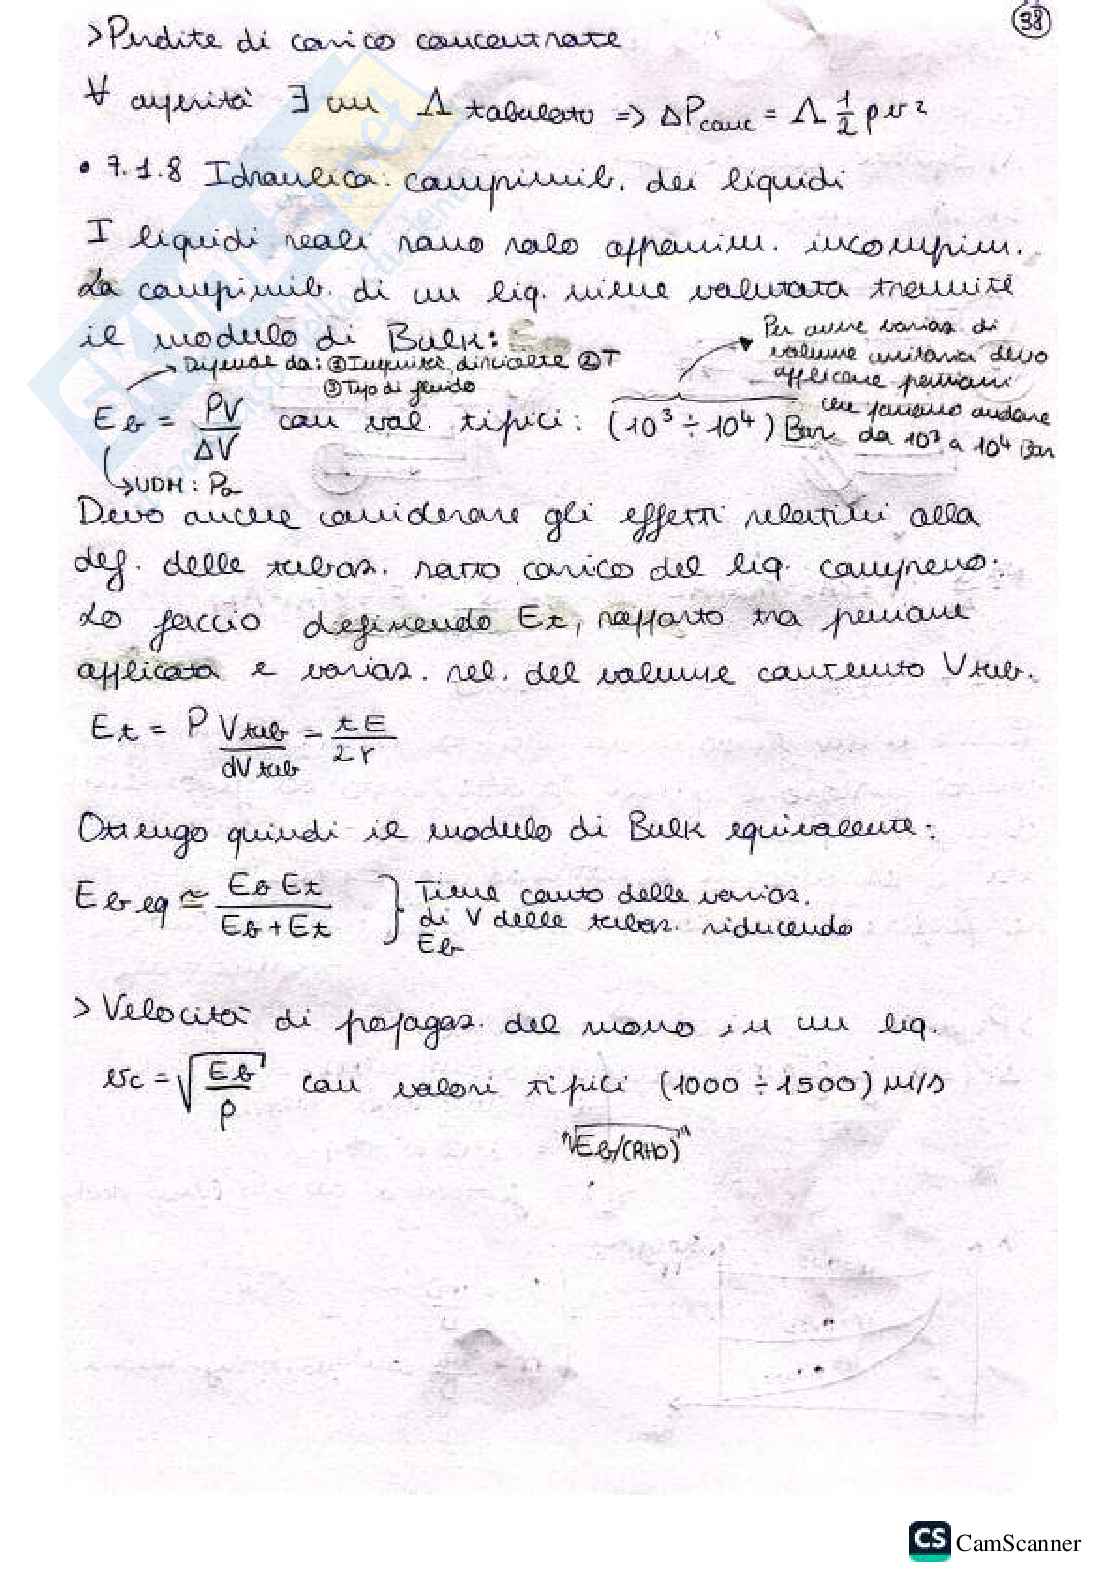 38
> Perdite di carico concentrate
∀ asperità ∃ un Λ tabulato => ΔPconc = Λ 1/2 ρv²
• 7.1.8 Idraulica: comprimib. dei liquidi
I liquidi reali sono solo apparim. incomprim.
La comprimib. di un liq. viene valutata tramite
il modulo di Bulk:
Dipende da: ① Impurità disciolte ② T
③ Tipo di fluido
Per avere variaz. di
volume unitaria devo
applicare pressioni
che possono andare
da 10³ a 10⁴ Bar
Eb = PV/ΔV con val. tipici: (10³ ÷ 10⁴) Bar
UDM: Pa
Devo anche considerare gli effetti relativi alla
def. delle tubaz. sotto carico del liq. compresso.
Lo faccio definendo Et, rapporto tra pressione
applicata e variaz. rel. del volume contenuto Vtub.
Et = P Vtub/dVtub = tE/2r
Ottengo quindi il modulo di Bulk equivalente:
Eb eq ≃ Eb Et/(Eb + Et)
Tiene conto delle variaz.
di V delle tubaz. riducendo
Eb
> Velocità di propagaz. del suono in un liq.
vc = √(Eb/ρ) con valori tipici (1000 ÷ 1500) m/s
"√Eb/(RHO)"
CS CamScanner